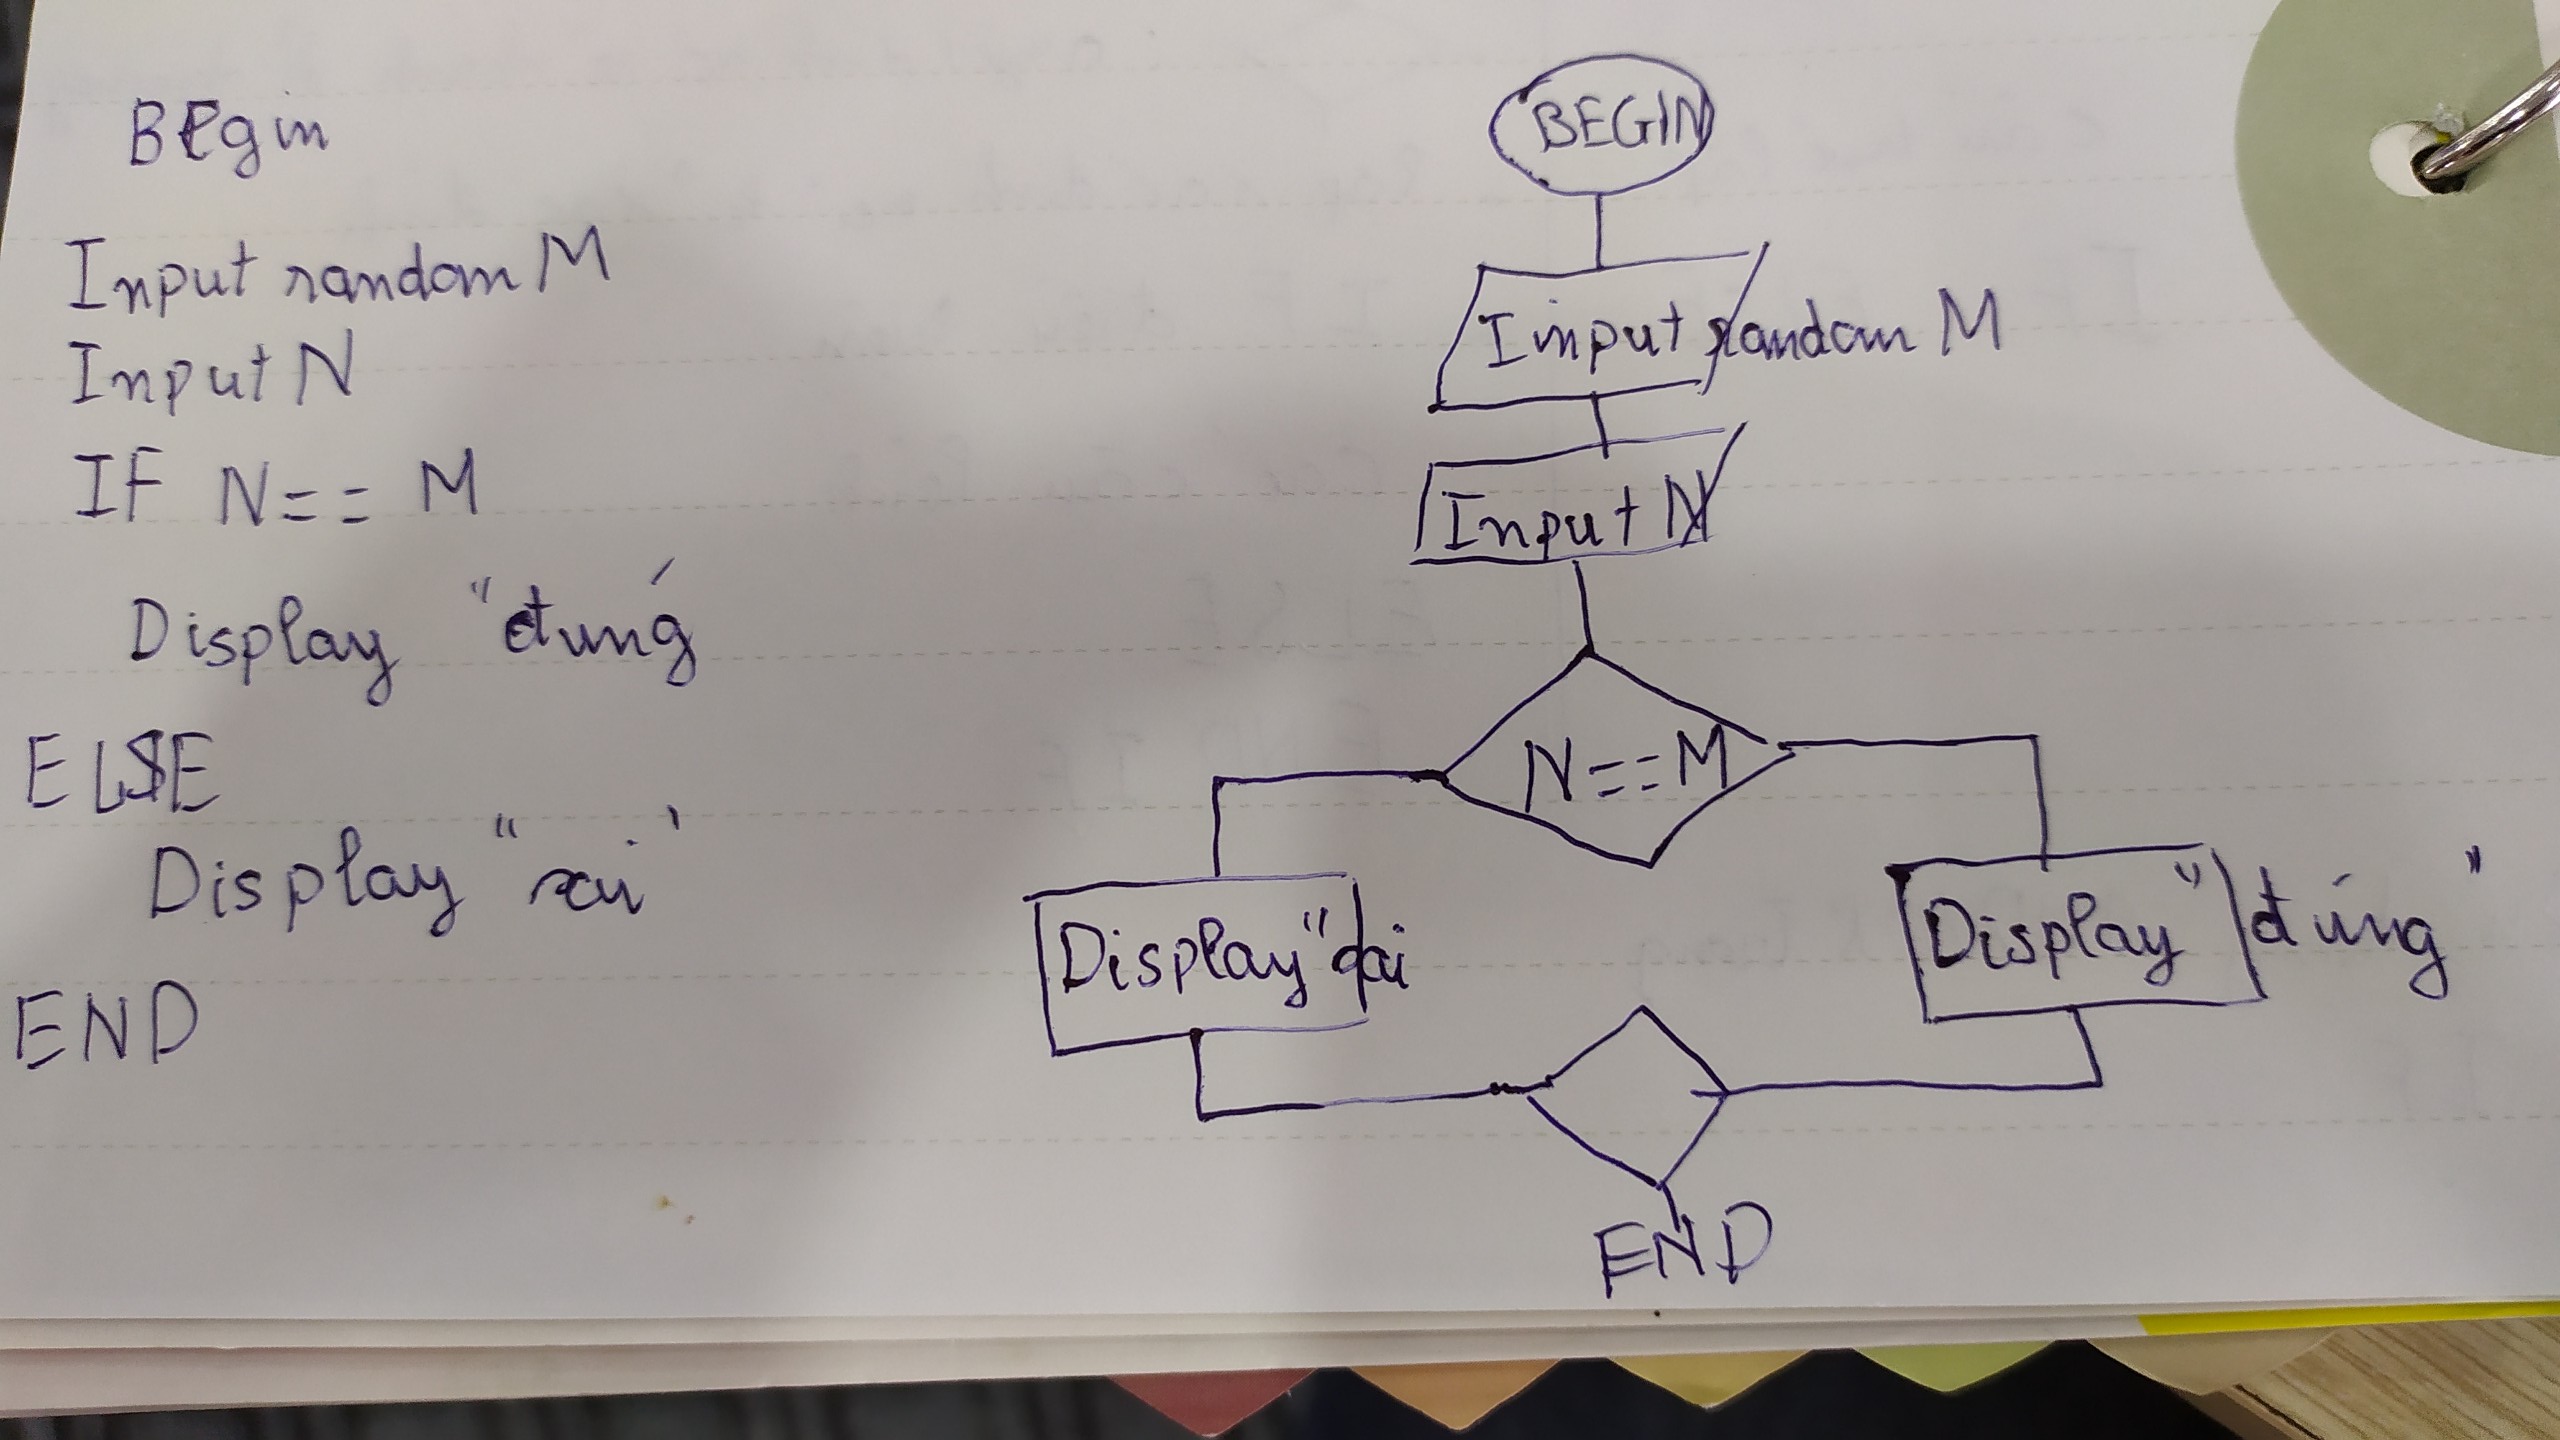 BEgin
Input random M
Input N
IF N == M
Display "đúng
ELSE
Display "sai'
END
BEGIN
Input random M
Input N
N==M
Display "sai
Display "đúng"
END